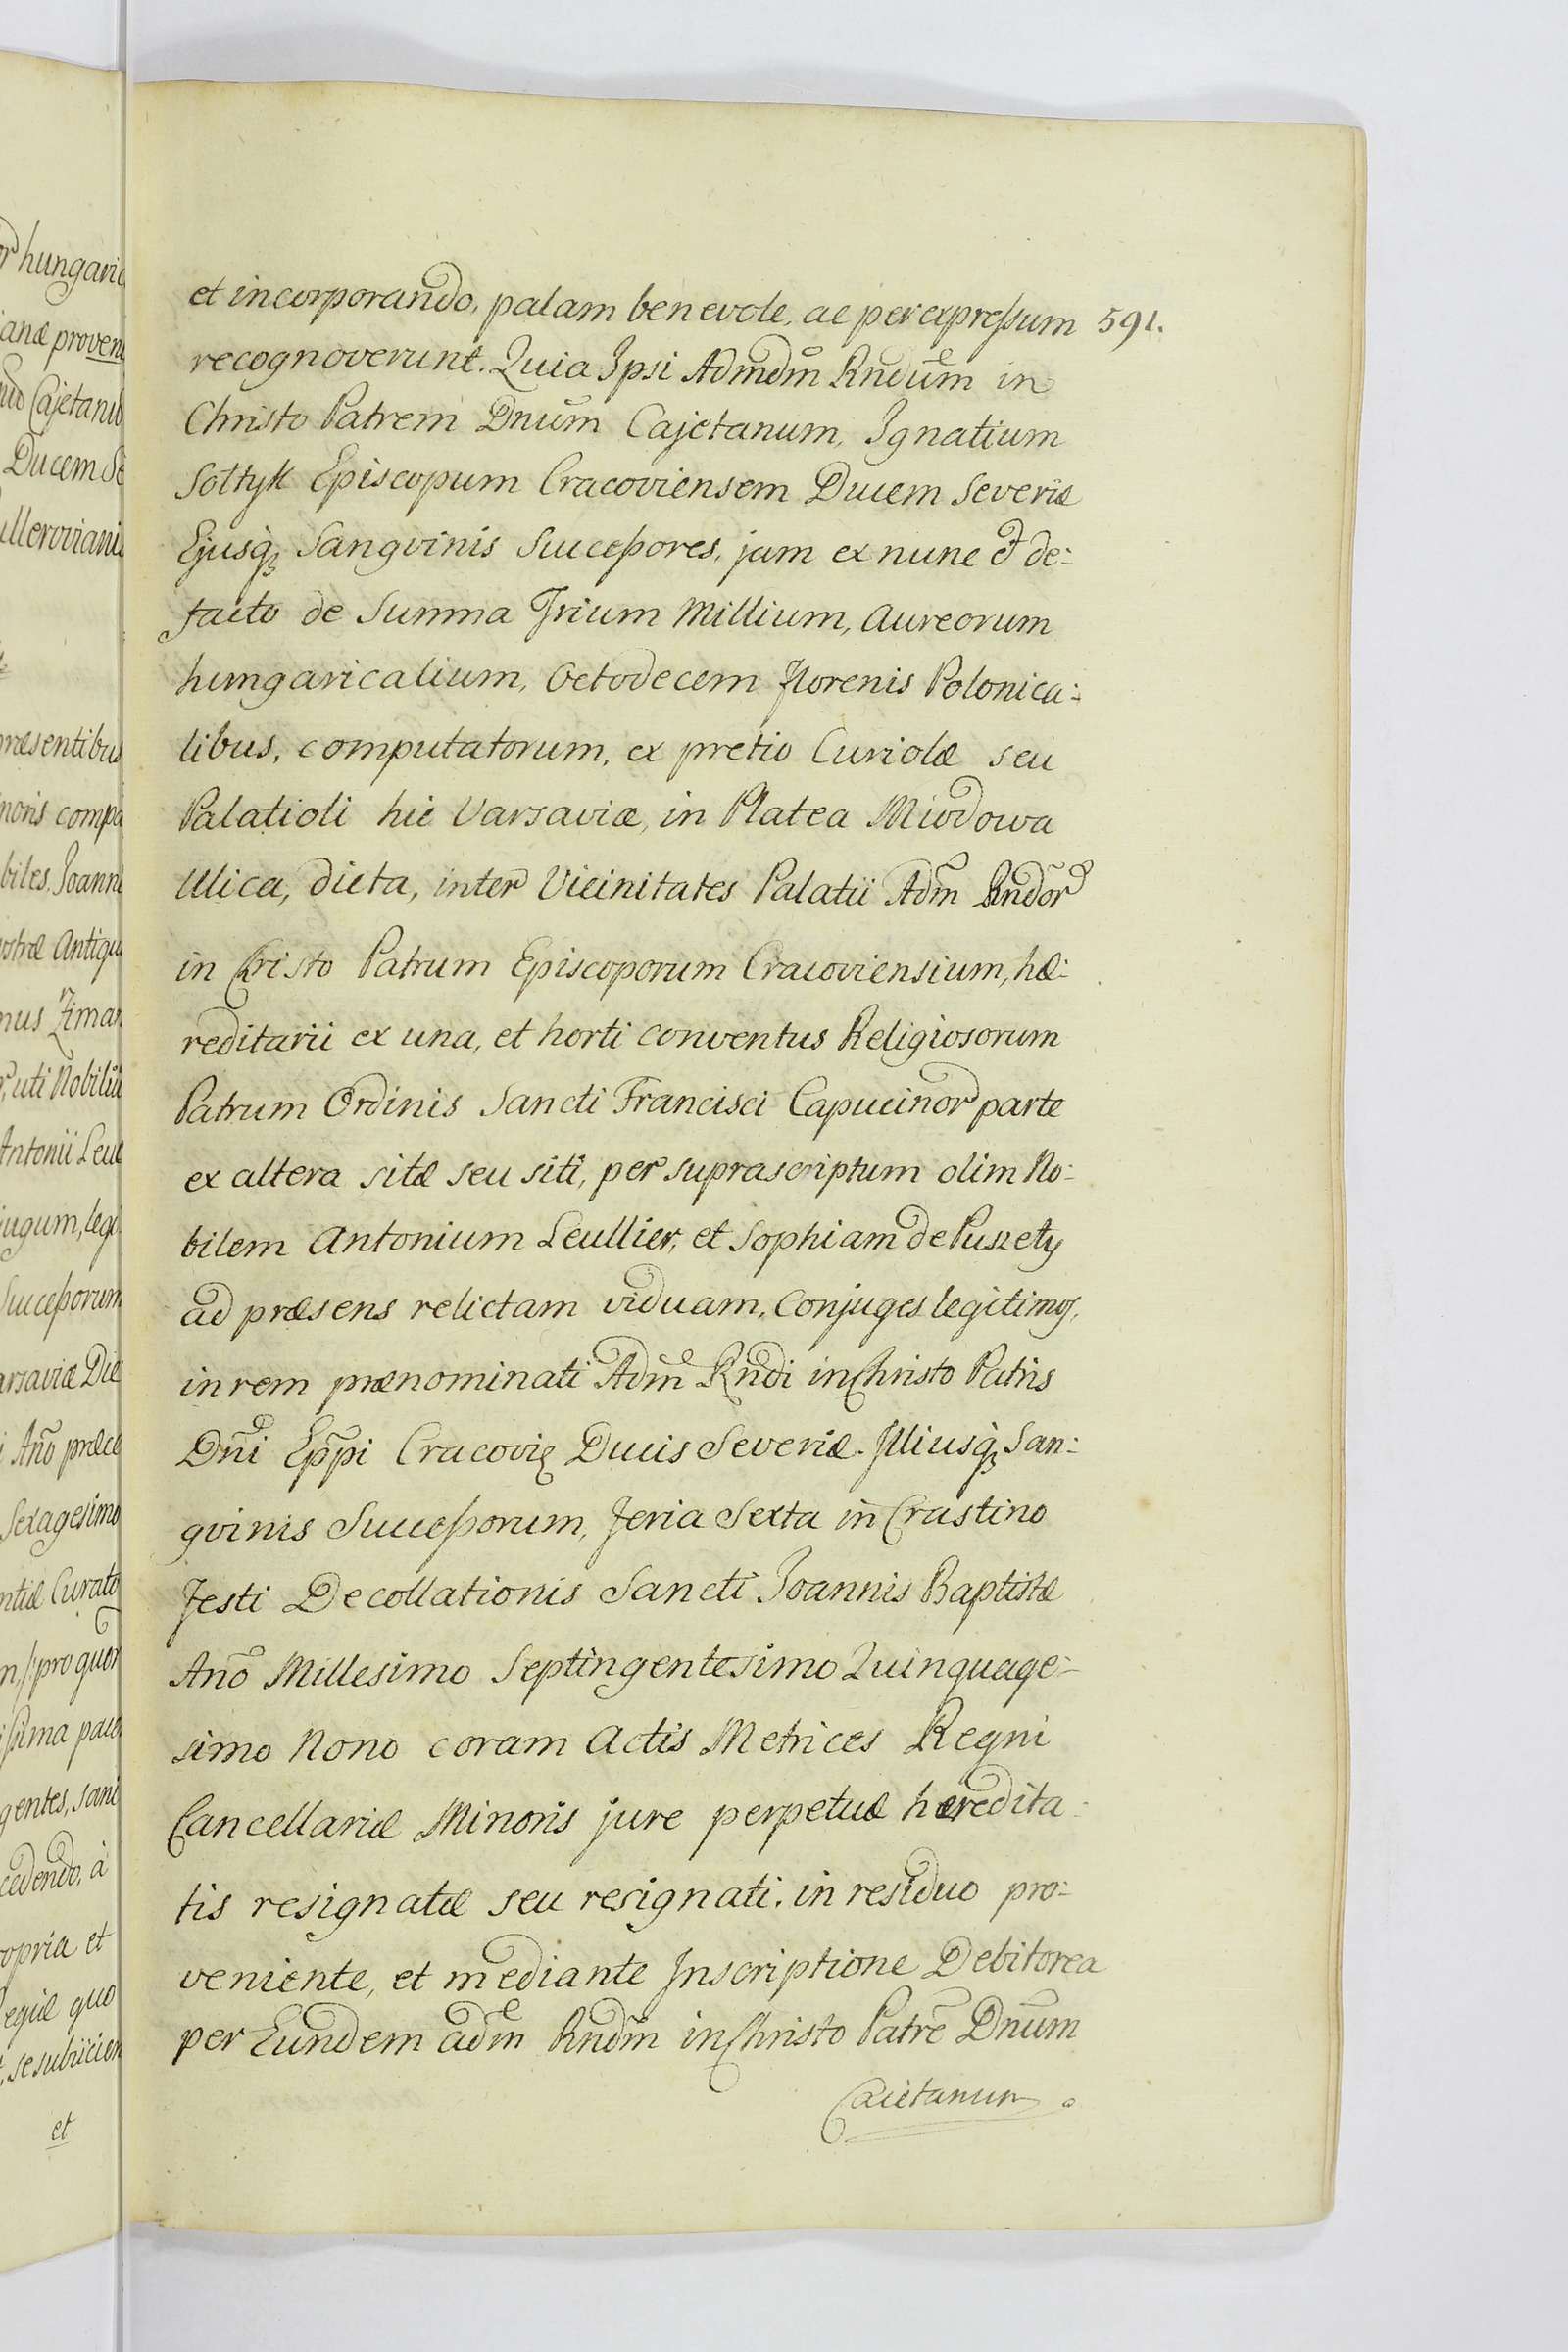 or hungaric
ianæ proveni
Cajetanū
Ducem Se
ulleroviani
præsentibus
noris compa
biles Joann
ostræ Antiqu
nus Ziman
r, uti Nobiliu
Antonii Leul
jugum, legi
Succeßorum
arsaviæ Die
i Añõ præce
Sexagesimo
ntiæ Curato
n /: pro quor
ißima pace
gentes, sani
cedendo, à
ropria et
egiæ quo
, se subiicien
et
et incorporando, palam benevole, ac per expreßum 591.
recognoverunt. Quia Ipsi Admdm̃ Rndum̃ in
Christo Patrem Dnum̃ Cajetanum, Ignatium
Sołtyk Episcopum Cracoviensem Ducem Severiæ
Ejusq̃ Sangvinis Succeßores, jam ex nunc & de:
facto de Summa Trium Millium, Aureorum
hungaricalium, Octodecem florenis Polonica:
libus, computatorum, ex pretio Curiolæ seu
Palatioli hic Varsaviæ, in Platea Miodowa
Ulica, dicta, inter Vicinitates Palatii Adm̃ Rndor̃
in Christo Patrum Episcoporum Cracoviensium, hæ:
reditarii ex una, et horti conventus Religiosorum
Patrum Ordinis Sancti Francisci Capucinor parte
ex altera sitæ seu siti, per suprascriptum olim No:
bilem Antonium Leullier, et Sophiam de Puszety
ad præsens relictam viduam, Conjuges legitimos,
in rem prænominati Adm̃ Rndi in Christo Patris
Dñi Ep̃pi Cracovię Ducis Severiæ. Illiusq̃ San:
gvinis Succeßorum, feria Sexta in Crastino
festi Decollationis Sancti Joannis Baptistæ
Añõ Millesimo Septingentesimo Quinquage:
simo Nono coram Actis Metrices Regni
Cancellariæ Minoris jure perpetuæ hæredita:
tis resignatæ seu resignati, in residuo pro:
veniente, et mediante Inscriptione Debitorea
per Eundem adm̃ Rndm̃ in Christo Patrẽ Dnum̃
Caietanum